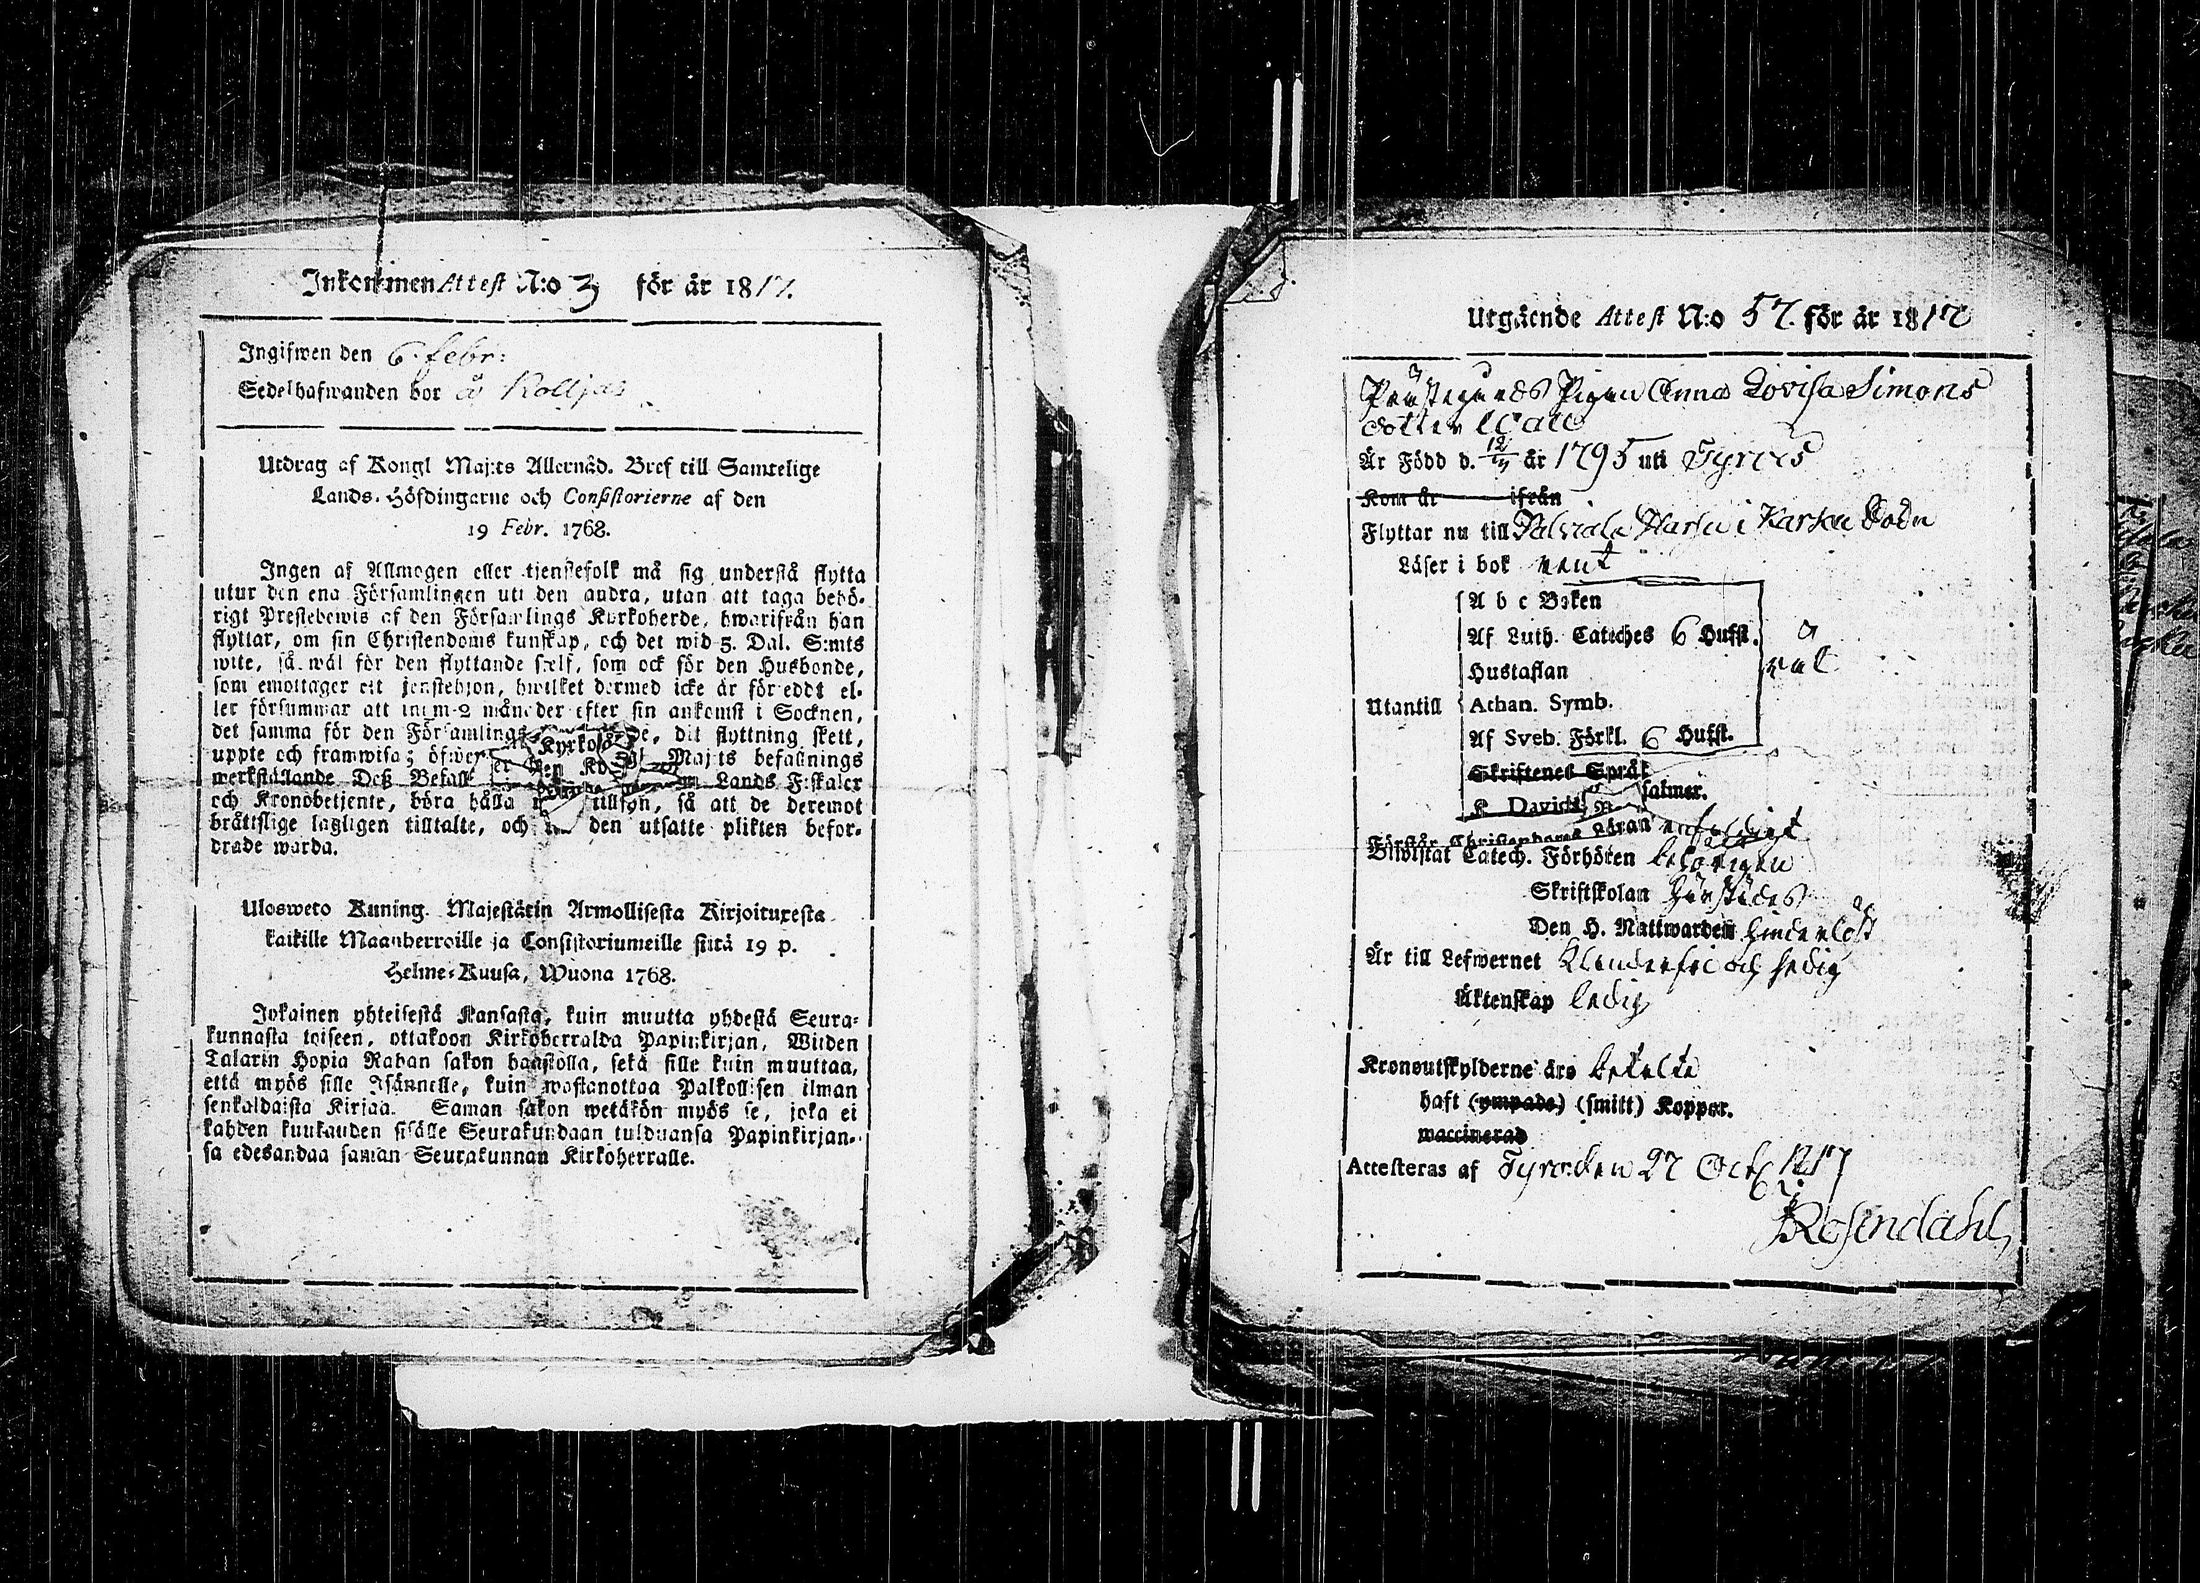 Inkommen Attest N:o 3 för år 1817.
Ingifwen den 6. febr:
Sedelhafwanden bor å Kolljas
Utdrag af Kongl Maj:ts Allernåd. Bref till Samtelige
Lands-Höfdingarne och Consistorierne af den
19 Febr. 1768.
Ingen af Allmogen eller tjenstefolk må sig understå flytta
utur den ena Församlingen uti den andra, utan att taga behö-
rigt Prestebewis af den Församlings Kyrkoherde, hwarifrån han
flyttar, om sin Christendoms kunskap, och det wid 5. Dal. S:mts
wite, så wäl för den flyttande sielf, som ock för den Husbonde,
som emottager ett tjenstehjon, hwilket dermed icke är förseddt el-
ler försummar att inom 2 månader efter sin ankomst i Socknen,
det samma för den Församlings Kyrkoherde, dit flyttning skett,
uppte och framwisa; öfwer Maj:ts befallnings
werkställande Deß Befall Lands Fiskaler
och Kronobetjente, böra hålla tillsyn, så att de deremot
bråttslige lagligen tilltalte, och den utsatte plikten befor-
drade warda.
Ulosweto Kuning. Majestätin Armollisesta Kirjoituxesta
kaikille Maanherroille ja Consistoriumeille siitä 19 p.
Helme-Kuusa, Wuona 1768.
Jokainen yhteisestä Kansasta, kuin muutta yhdestä Seura-
kunnasta toiseen, ottakoon Kirkoherralda Papinkirjan, Wiiden
Talarin Hopia Rahan sakon haastolla, sekä sille kuin muuttaa,
että myös sille Isännelle, kuin wastanottaa Palkollisen ilman
senkaldaista Kirjaa. Saman sakon wetäkön myös se, joka ei
kahden kuukauden sisälle Seurakundaan tulduansa Papinkirjan-
sa edesandaa saman Seurakunnan Kirkoherralle.
Utgående Attest N:o 57. för år 1817
Prästegårds Pigan Anna Lovisa Simons
dotter
Är Född d. 12/ år 1795 uti Tyrvis
Kom år ifrån
Flyttar nu till i Karku Sokn
Läser i bok rent
A b c Boken
Af Luth. Cateches 6 Hufst.
Hustaflan
Utantill Athan. Symb.
Af Sveb. Förkl. 6 Hufst.
Skriftenes Språk
K Davids salmer.
Förstår Christendoms Läran enfaldigt
Biwistat Catech. Förhören behörigen
Skriftskolan härstädes
Den H. Nattwarden hinderlöst
Är till Lefwernet Klanderfri och sedig
Äktenskap ledig
Kronoutskylderne äro betalte
haft (ympade) (smitt) Koppor.
waccinerad
Attesteras af Tyrvis den 27 Oct: 1817
Rosendahl